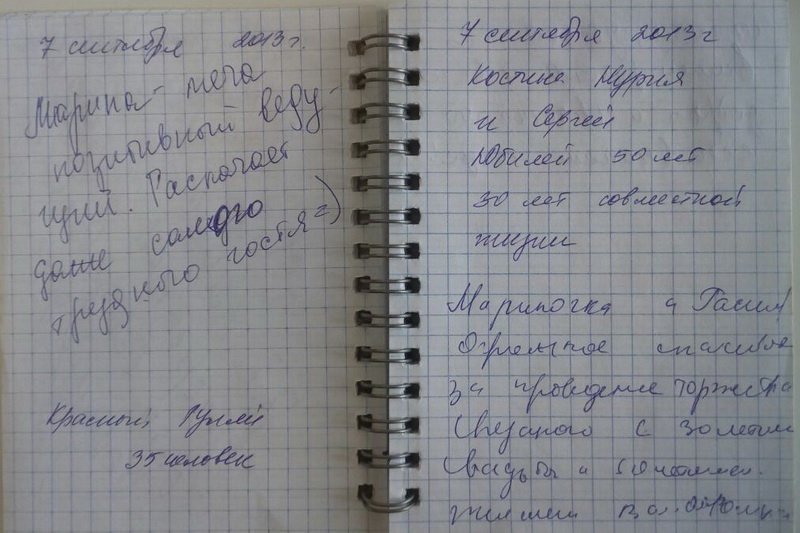 7 сентября 2013 г.
Марина - мега
позитивный веду-
щий. Раскачает
даже самого
трудного гостя =)
Красный Гуляй
35 человек
7 сентября 2013 г
Костина Нурия
и Сергей
Юбилей 50 лет
30 лет совместной
жизни
Мариночка и
Огромное спасибо
за проведение торжества
Связаного с 30 летием
Свадьбы и 50 летием.
Желаем